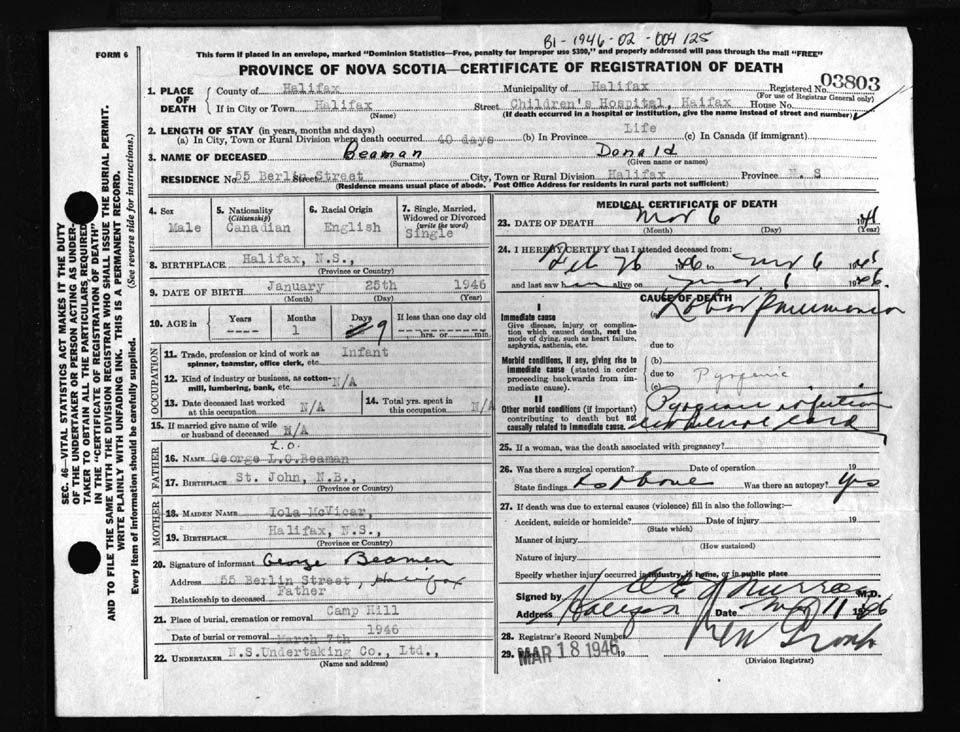 B1-1946-02-004125
FORM 6
This form if placed in an envelope, marked "Dominion Statistics—Free, penalty for improper use $300," and properly addressed will pass through the mail "FREE"
PROVINCE OF NOVA SCOTIA—CERTIFICATE OF REGISTRATION OF DEATH
SEC. 46—VITAL STATISTICS ACT MAKES IT THE DUTY
OF THE UNDERTAKER OR PERSON ACTING AS UNDER-
TAKER TO OBTAIN ALL THE PARTICULARS REQUIRED
IN THE "CERTIFICATE OF REGISTRATION OF DEATH"
AND TO FILE THE SAME WITH THE DIVISION REGISTRAR WHO SHALL ISSUE THE BURIAL PERMIT.
WRITE PLAINLY WITH UNFADING INK. THIS IS A PERMANENT RECORD.
Every item of information should be carefully supplied. (See reverse side for instructions.)
1. PLACE OF DEATH
County of Halifax Municipality of Halifax Registered No. 03803
(For use of Registrar General only)
If in City or Town Halifax Street Children's Hospital, Haifax House No.
(Name) (If death occurred in a hospital or institution, give the name instead of street and number)
2. LENGTH OF STAY (in years, months and days)
(a) In City, Town or Rural Division where death occurred 40 days (b) In Province Life (c) In Canada (if immigrant)
3. NAME OF DECEASED Beaman Donald
(Surname) (Given name or names)
RESIDENCE No. 55 Berlin Street Street City, Town or Rural Division Halifax Province N. S
(Residence means usual place of abode. Post Office Address for residents in rural parts not sufficient)
4. Sex Male
5. Nationality (Citizenship) Canadian
6. Racial Origin English
7. Single, Married, Widowed or Divorced (write the word) Single
8. BIRTHPLACE Halifax, N.S.,
(Province or Country)
9. DATE OF BIRTH January 25th 1946
(Month) (Day) (Year)
10. AGE in Years ---- Months 1 Days 9 If less than one day old hrs. or min.
OCCUPATION
11. Trade, profession or kind of work as spinner, teamster, office clerk, etc. Infant
12. Kind of industry or business, as cotton-mill, lumbering, bank, etc. N/A
13. Date deceased last worked at this occupation N/A
14. Total yrs. spent in this occupation N/A
15. If married give name of wife or husband of deceased N/A
FATHER
L.O.
16. NAME George L.O.Beaman
17. BIRTHPLACE St. John, N.B.,
(Province or Country)
MOTHER
18. MAIDEN NAME Iola McVicar,
19. BIRTHPLACE Halifax, N.S.,
(Province or Country)
20. Signature of informant George Beamen
Address 55 Berlin Street, Halifax
Relationship to deceased Father
21. Place of burial, cremation or removal Camp Hill
Date of burial or removal March 7th 1946
22. UNDERTAKER N.S.Undertaking Co., Ltd.,
(Name and address)
MEDICAL CERTIFICATE OF DEATH
23. DATE OF DEATH Mar 6
(Month) (Day) (Year)
24. I HEREBY CERTIFY that I attended deceased from:
Feb 26 1946 to Mar 6 1946
and last saw him alive on Mar. 6 1946.
CAUSE OF DEATH
I
Immediate cause (a) Lobar Pneumonia
Give disease, injury or complication which caused death, not the mode of dying, such as heart failure, asphyxia, asthenia, etc.
due to
Morbid conditions, if any, giving rise to immediate cause (stated in order proceeding backwards from immediate cause).
(b)
due to Pyogenic
(c)
II
Other morbid conditions (if important) contributing to death but not causally related to immediate cause.
Pyogenic infection
25. If a woman, was the death associated with pregnancy?
26. Was there a surgical operation? Date of operation 19
State findings Was there an autopsy? Yes
27. If death was due to external causes (violence) fill in also the following:—
Accident, suicide or homicide? Date of injury 19
(State which)
Manner of injury
(How sustained)
Nature of injury
Specify whether injury occurred in industry, in home, or in public place
Signed by Murray M.D.
Address Halifax Date Mar 11 1946
28. Registrar's Record Number
29. MAR 18 1946 19
(Division Registrar)